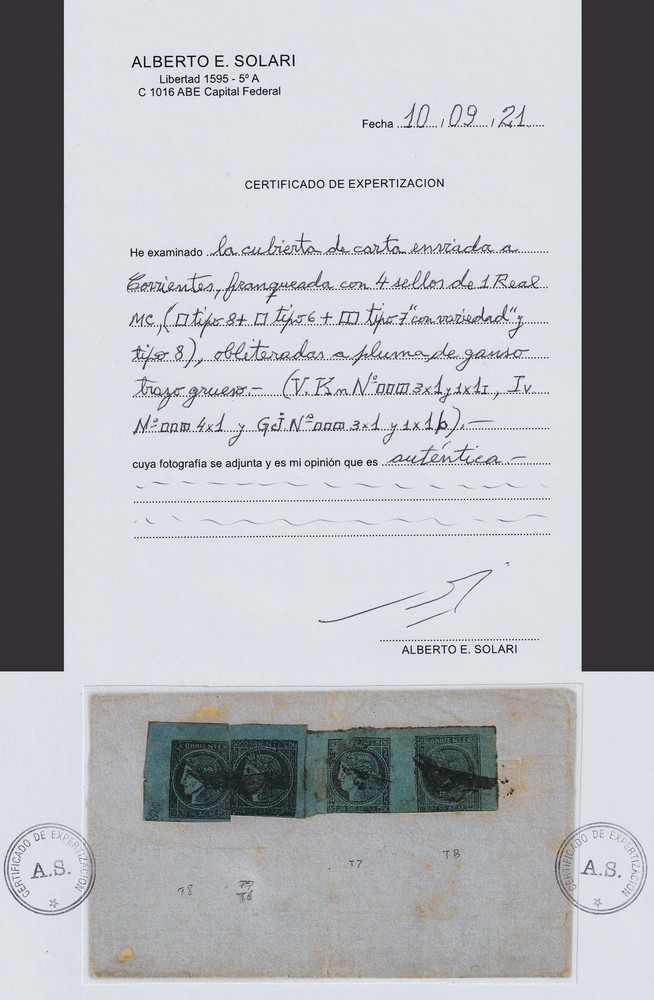 ALBERTO E. SOLARI
Libertad 1595 - 5º A
C 1016 ABE Capital Federal
Fecha 10 / 09 / 21
CERTIFICADO DE EXPERTIZACION
He examinado la cubierta de carta enviada a
Corrientes, franqueada con 4 sellos de 1 Real
MC, (□ tipo 8 + □ tipo 6 + □□ tipo 7 "con variedad" y
tipo 8), obliteradas a pluma de ganso
trazo grueso.- (V. Km Nº□□□ 3x1 y 1x1I, Iv
Nº□□□ 4x1 y GJ Nº□□□ 3x1 y 1x1b).-
cuya fotografía se adjunta y es mi opinión que es auténtica.-
ALBERTO E. SOLARI
CORRIENTES
CORRIENTES
T8
T6
T7
T8
CERTIFICADO DE EXPERTIZACION
A.S.
CERTIFICADO DE EXPERTIZACION
A.S.